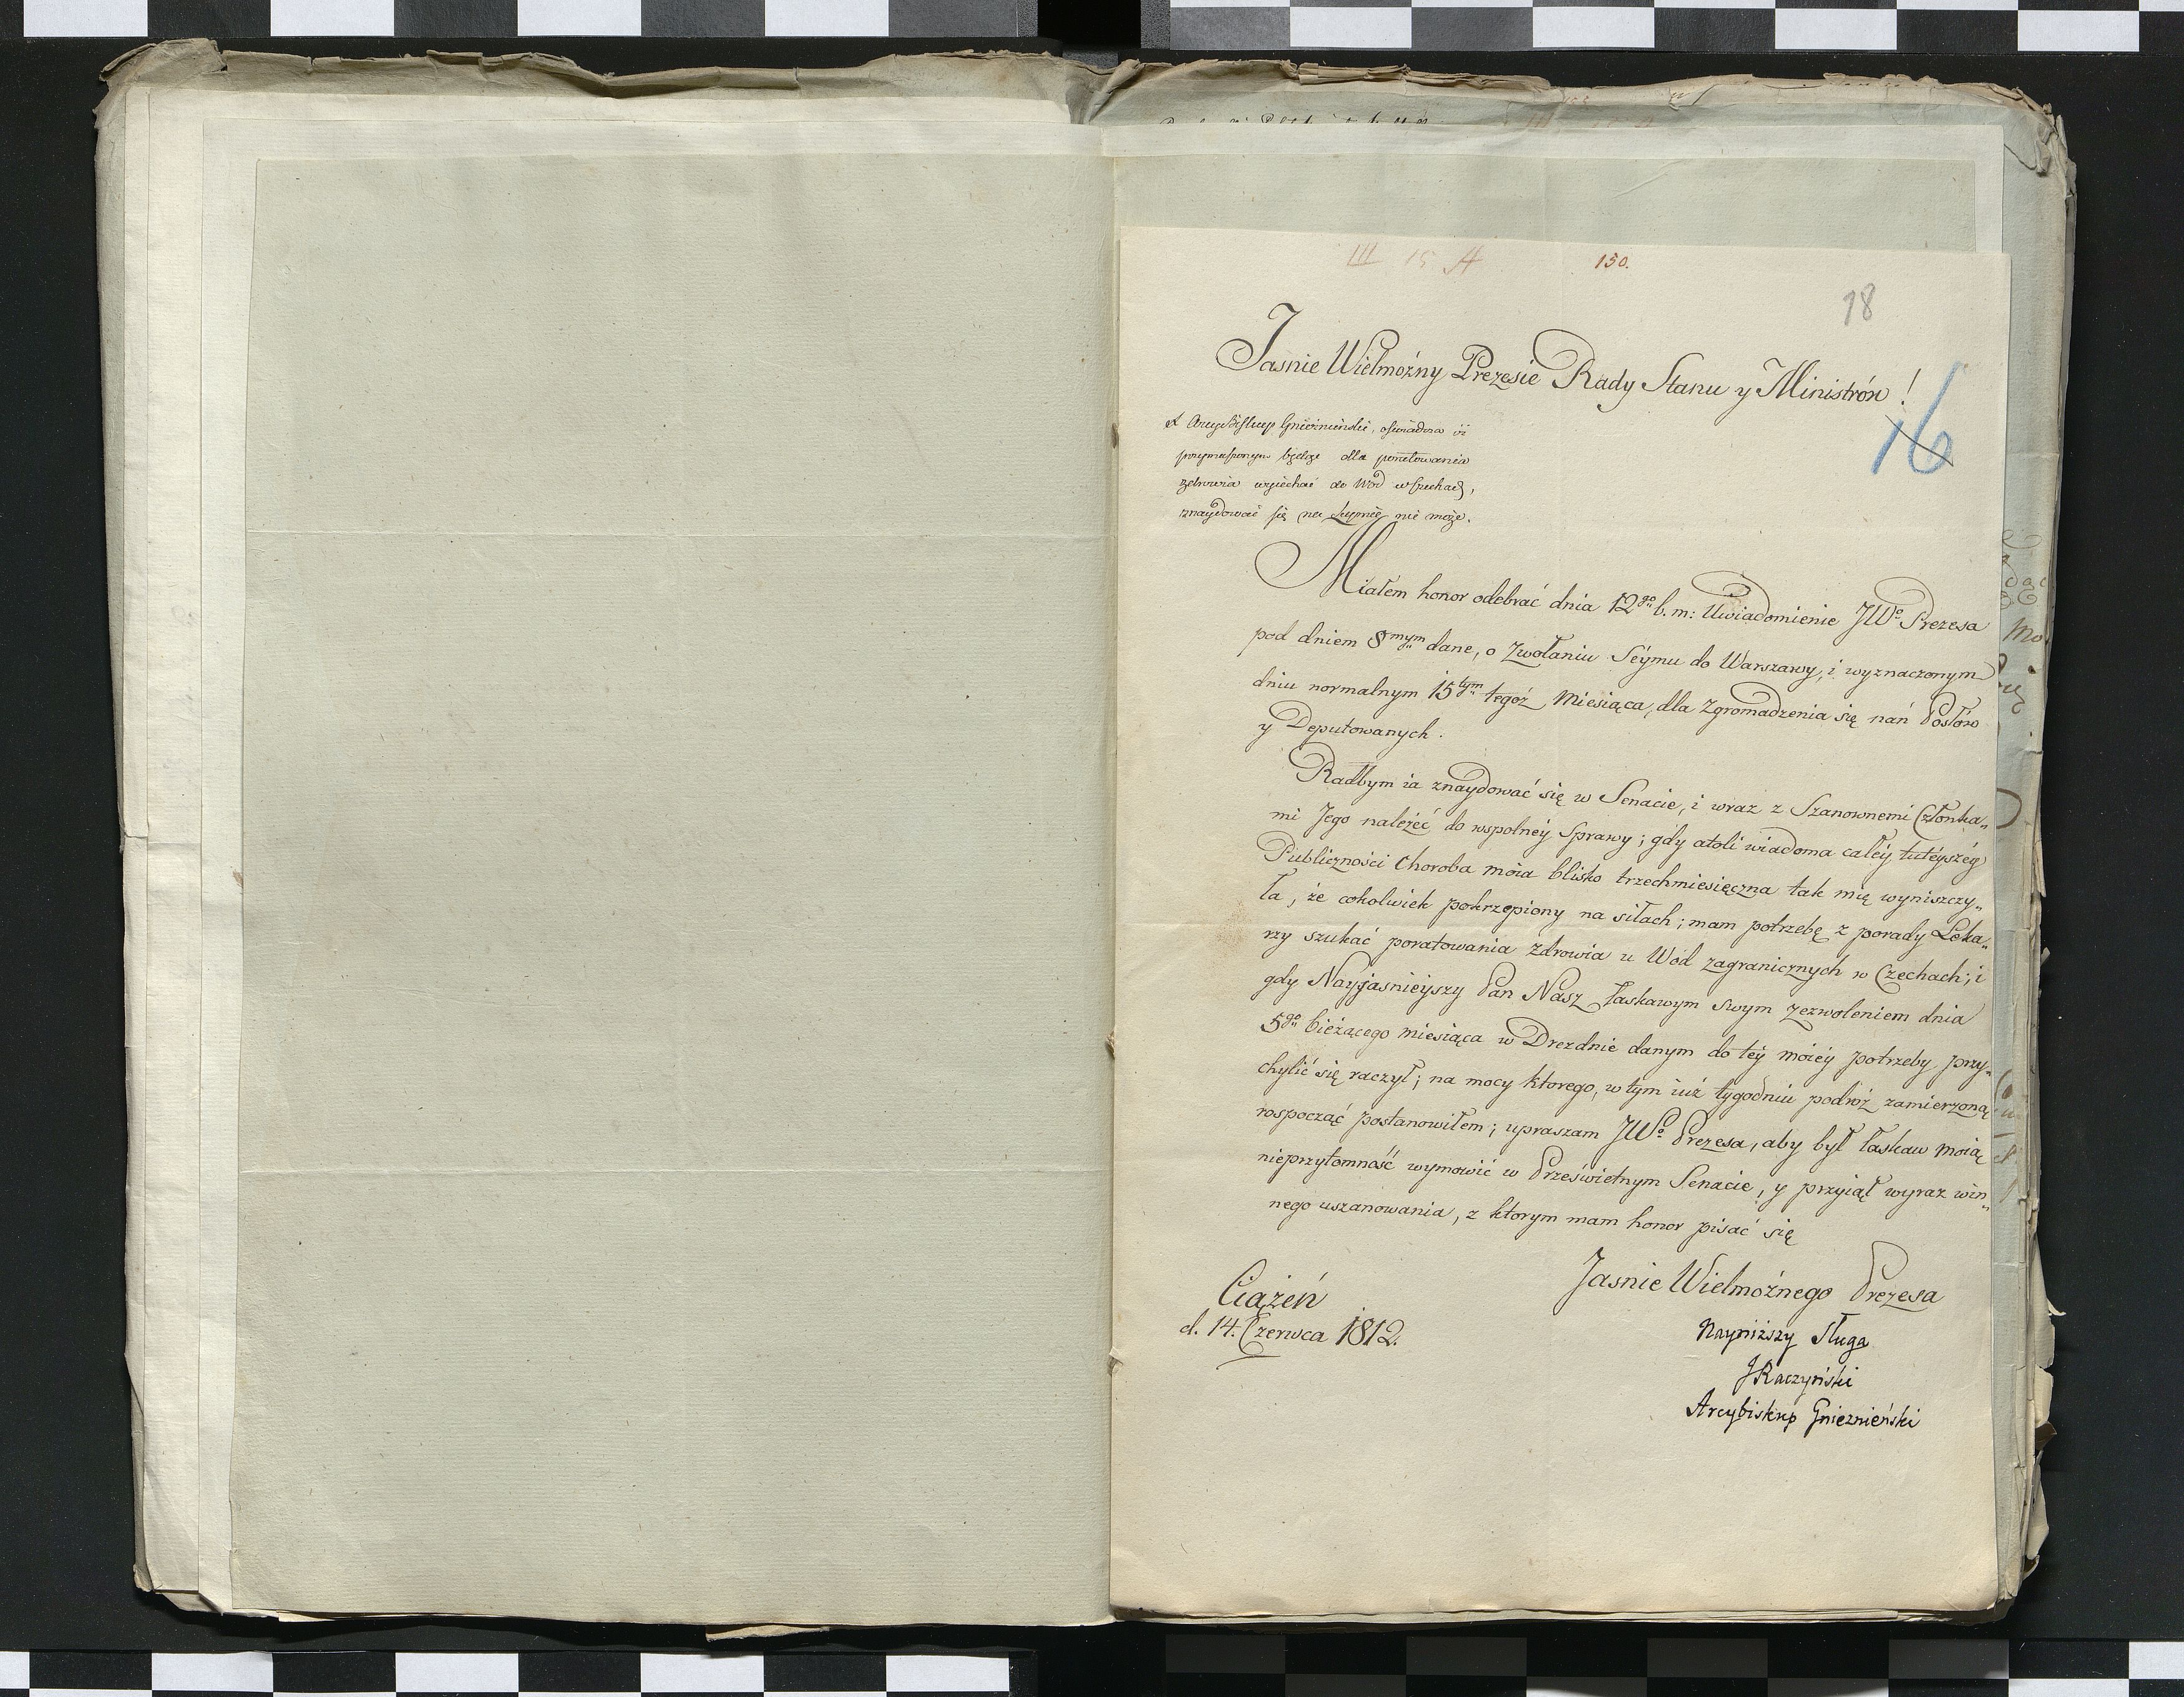 III 15 A 150.
18
Jasnie Wielmożny Prezesie Rady Stanu y Ministrów!
16
Arcy Biskup Gnieznieński, oświadcza iż
przymuszonym będąc dla poratowania
zdrowia wyiechać do Wód w Czechach,
znaydować się na Seymie nie może.
Miałem honor odebrać dnia 12go b. m: Uwiadomienie JWo Prezesa
pod dniem 8mym dane, o Zwołaniu Séymu do Warszawy, i wyznaczonym
dniu normalnym 15tym tegoż Miesiąca, dla Zgromadzenia się nań Posłów
y Deputowanych.
Radbym ia znaydować się w Senacie, i wraz z Szanownemi Członka„
mi Jego należéć do wspolnéy Sprawy; gdy atoli wiadoma całéy tutéyszéy
Publiczności Choroba moia blisko trzechmiesięczna tak mię wyniszczy„
ła, że cokolwiek pokrzepiony na siłach; mam potrzebę z porady Leka„
rzy szukać poratowania zdrowia u Wód zagranicznych w Czechach; i
gdy Nayjasnieyszy Pan Nasz łaskawym swym zezwoleniem dnia
5go bieżącego miesiąca w Dreznie danym do téy moiéy potrzeby przy„
chylić się raczył; na mocy ktorego, w tym iuż tygodniu podróż zamierzoną
rospocząć postanowiłem; upraszam JWo Prezesa, aby był łaskaw moią
nieprzytomność wymowić w Prześwietnym Senacie, y przyiął wyraz win„
nego uszanowania, z ktorym mam honor pisać się
Jasnie Wielmożnego Prezesa
Ciążeń
d. 14. Czerwca 1812.
Nayniższy Sługa
JRaczyński
Arcybiskup Gnieznieński